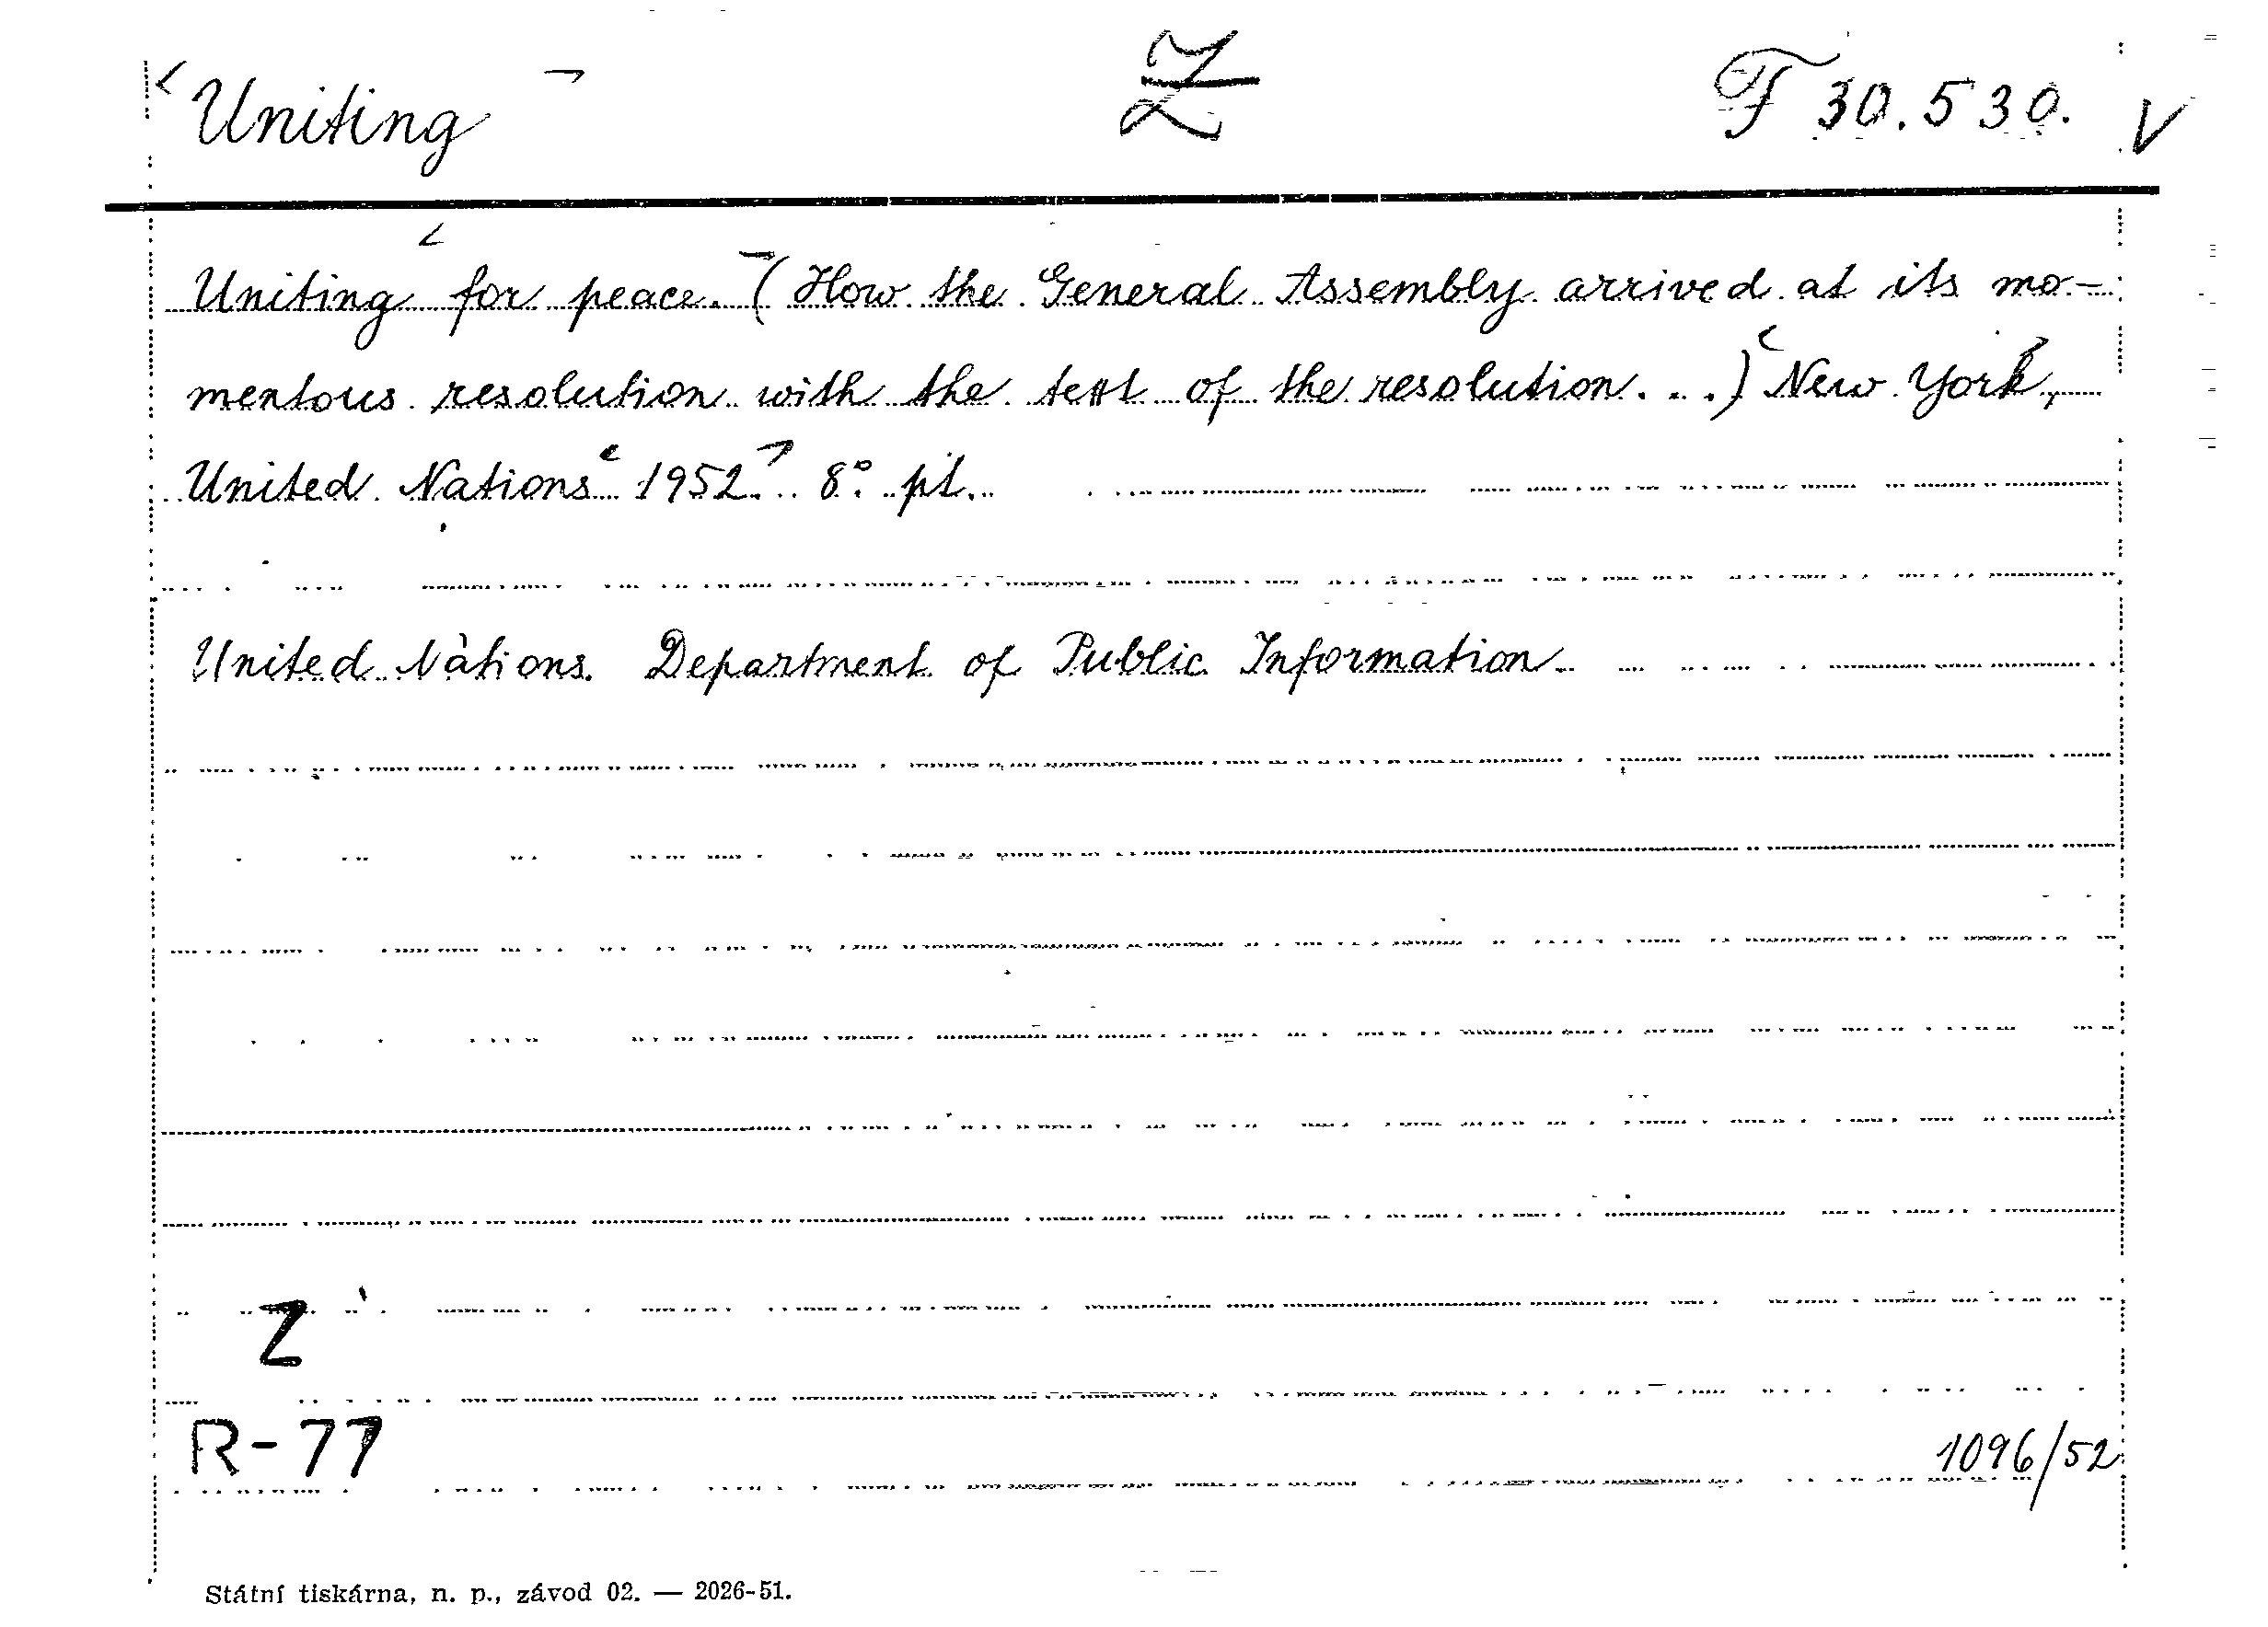 Uniting Z F 30.530. V
Uniting for peace. (How the General Assembly arrived at its mo-
mentous resolution with the text of the resolution...) New York,
United Nations 1952. 8° pt.
United Nations. Department of Public Information
Z
R-77
1096/52
Státní tiskárna, n. p., závod 02. — 2026-51.